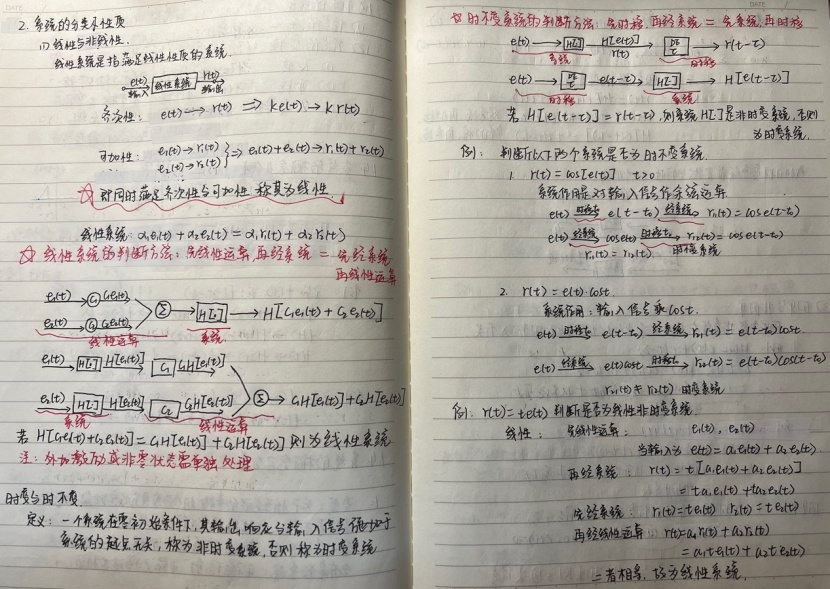 2. 系统的分类及性质
(1) 线性与非线性.
线性系统是指满足线性性质的系统.
e(t) 输入 → 线性系统 → r(t) 输出
齐次性: e(t) → r(t) ⇒ Ke(t) → Kr(t)
可加性: e₁(t) → r₁(t)
e₂(t) → r₂(t) } ⇒ e₁(t) + e₂(t) → r₁(t) + r₂(t)
☆ 即同时满足齐次性与可加性 称其为线性.
线性系统: α₁e₁(t) + α₂e₂(t) = α₁r₁(t) + α₂r₂(t)
☆ 线性系统的判断方法: 先线性运算,再经系统 = 先经系统
再线性运算
e₁(t) → C₁ C₁e₁(t)
e₂(t) → C₂ C₂e₂(t) → Σ → H[·] → H[C₁e₁(t) + C₂e₂(t)]
线性运算 系统
e₁(t) → H[·] H[e₁(t)] → C₁ C₁H[e₁(t)]
e₂(t) → H[·] H[e₂(t)] → C₂ C₂H[e₂(t)] → Σ → C₁H[e₁(t)] + C₂H[e₂(t)]
系统 线性运算
若 H[C₁e₁(t) + C₂e₂(t)] = C₁H[e₁(t)] + C₂H[e₂(t)] 则为线性系统
注: 外加激励或非零状态需单独处理
时变与时不变
定义: 一个系统在零初始条件下,其输出响应与输入信号施加于
系统的起点无关,称为非时变系统,否则称为时变系统
时不变系统的判断方法: 先时移,再经系统 = 先系统,再时移
e(t) → H[·] H[e(t)] r(t) → DE τ → r(t-τ)
系统 时移
e(t) → DE τ → e(t-τ) → H[·] → H[e(t-τ)]
时移 系统
若 H[e(t-τ)] = r(t-τ), 则系统 H[·] 是非时变系统, 否则
为时变系统.
例: 判断以下两个系统是否为时不变系统.
1. r(t) = cos[e(t)] t>0
系统作用是对输入信号作余弦运算
e(t) 时移t₀→ e(t-t₀) 经系统→ r₁₁(t) = cos e(t-t₀)
e(t) 经系统→ cos e(t) 时移t₀→ r₁₂(t) = cos e(t-t₀)
r₁₁(t) = r₁₂(t) 时移系统
2. r(t) = e(t)·cost
系统作用: 输入信号乘cost.
e(t) 时移t₀→ e(t-t₀) 经系统→ r₂₁(t) = e(t-t₀)cost.
e(t) 经系统→ e(t)cost 时移t₀→ r₂₂(t) = e(t-t₀)cos(t-t₀)
r₂₁(t) ≠ r₂₂(t) 时变系统
例: r(t) = te(t) 判断是否为线性非时变系统.
线性: 先线性运算: e₁(t), e₂(t)
当输入为 e(t) = a₁e₁(t) + a₂e₂(t)
再经系统: r(t) = t[a₁e₁(t) + a₂e₂(t)]
= ta₁e₁(t) + ta₂e₂(t)
先经系统: r₁(t) = te₁(t) r₂(t) = te₂(t)
再经线性运算 r(t) = a₁r₁(t) + a₂r₂(t)
= a₁te₁(t) + a₂te₂(t)
二者相多, 故为线性系统.